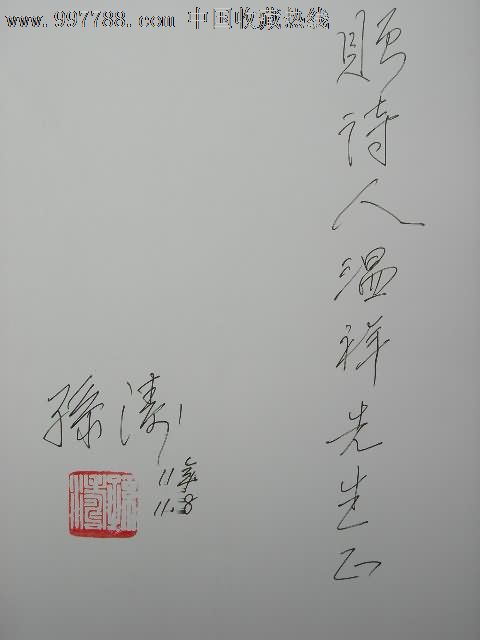 www.997788.com 中国收藏热线
贈诗人温祥先生正
孫涛
11年
11.8